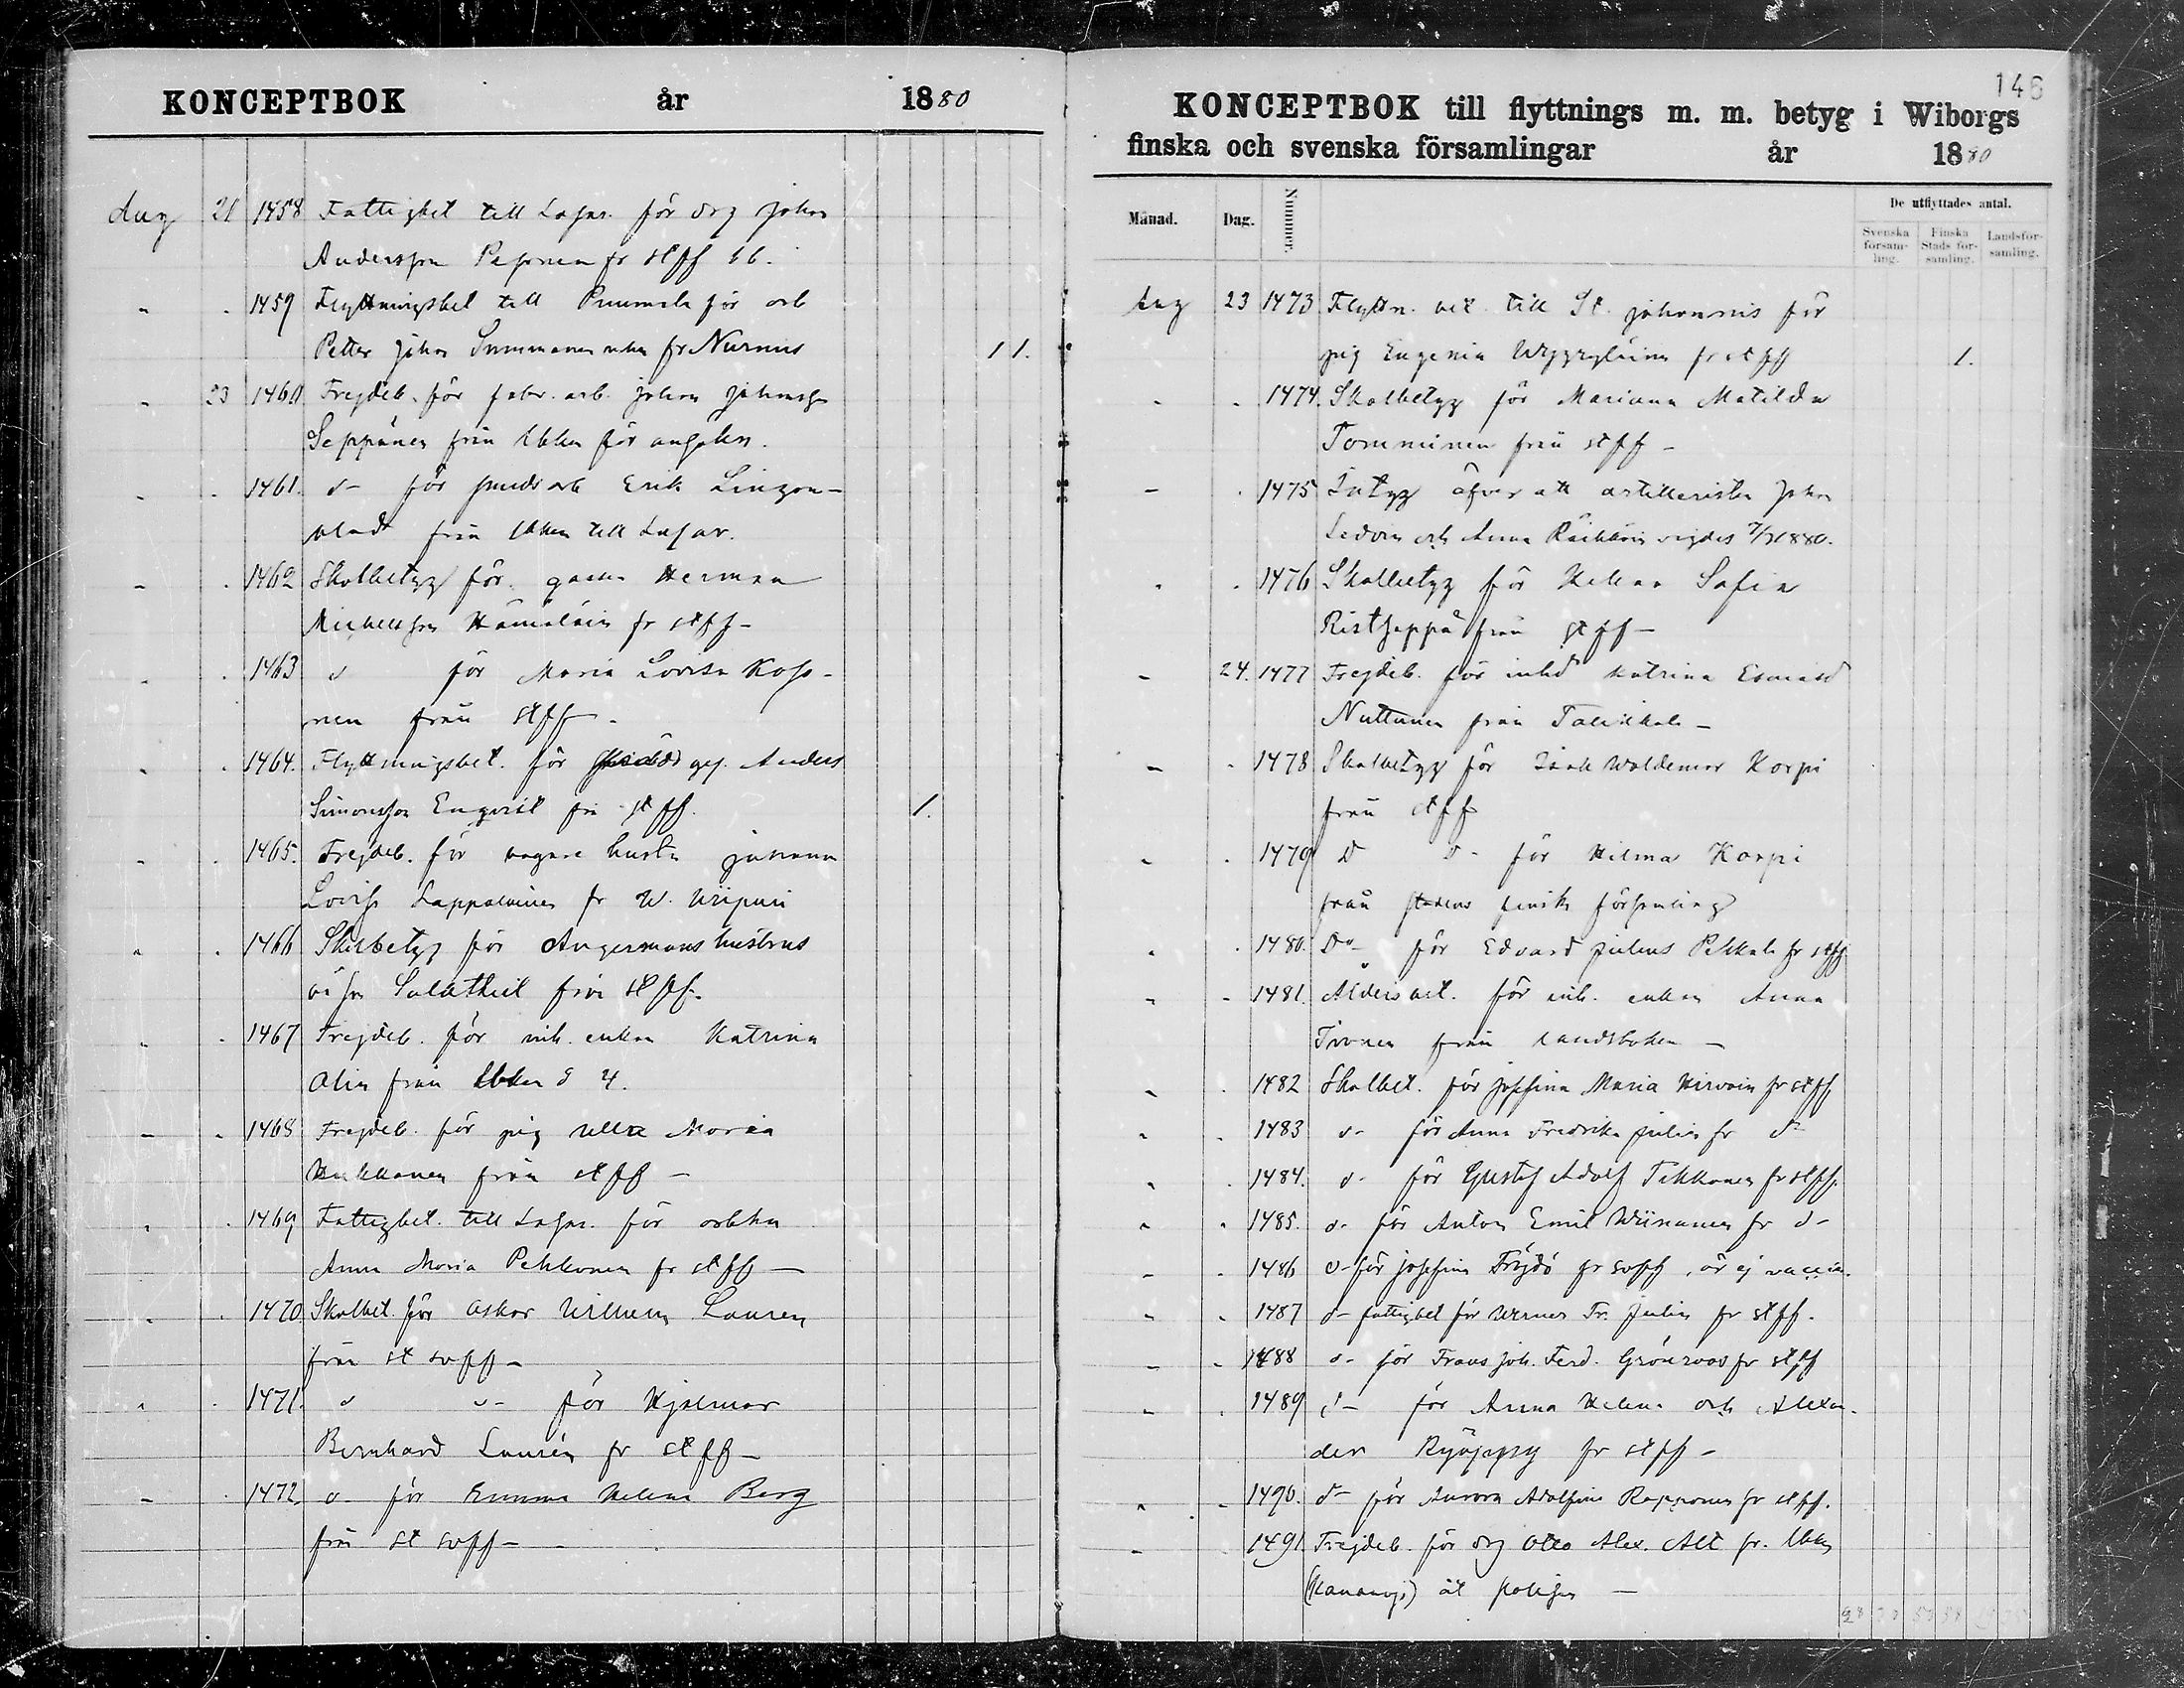 KONCEPTBOK år 1880
Aug 21 1458 Fattigbet till Lasar. för drg Johan
Andersson Pesonen fr stff bb.
" . 1459 Flyttningsbet till Puumala för arb
Petter Johan Summanen fr Nurmis 1 1.
" 23 1460 Frejdeb. för fabr. arb. Johan Johansson
Seppänen från lbken för
" . 1461. d- för arb Erik Lingon-
blad från lbken till Lasar.
" . 1462 Skolbetyg för gossen Herman
Michelsson Hämäläin fr stff-
" . 1463 d för Maria Lovisa Koso-
nen från stff-
" . 1464. Flyttningsbet. för gej. Anders
Simonsson Enqvist frå stff. 1.
" . 1465. Frejdeb. för bagare hustr Johanna
Lovisa Lappalainen fr W. Wiipuri
" . 1466 Skolbetyg för Angermans hustrus
från stff.
" . 1467 Frejdeb. för inh. enkan Katrina
Olin från lbken S 4.
" . 1468 Frejdeb. för pig Ulla Maria
Kukkonen från stff -
" . 1469 Fattigbet. till Lasar. för arbkn
Anna Maria Pekkonen fr stff -
" . 1470 Skolbet. för Oskar Wilhelm Lauren
från st svff -
" . 1471. d d- för Hjalmar
Bernhard Laurén fr stff -
" . 1472. d- för Emma Helena Berg
frå st svff -
146
KONCEPTBOK till flyttnings m. m. betyg i Wiborgs
finska och svenska församlingar år 1880
Månad. Dag. Nummer. De utflyttades antal.
Svenska församling. Finska Stads församling. Landsförsamling.
Aug 23 1473 Flyttn. bet. till St. Johannis för
pig Eugenia fr stff 1.
" . 1474. Skolbetyg för Mariana Matilda
Tomminen från stff -
" . 1475 Intyg öfver att artilleristen Johan
och Anna Räikköin vigdes 7/7 1880.
" . 1476 Skolbetyg för Helena Sofia
Ristseppä från stff -
" 24. 1477 Frejdeb. för inhd Katrina Esaiasd
Nuttunen från Talikkala -
" . 1478 Skolbetyg för Isak Waldemar Korpi
från stff
" . 1479 D D- för Hilma Korpi
från stadens finska församling
" . 1480. Do- för Edvard Julius Pekkala fr stff
" . 1481. Åldersbet. för inh. enkan Anna
Tironen från landsboken -
" . 1482 Skolbet. för Josefina Maria Hirvoin fr stff
" . 1483 d- för Anna Fredrika Julin fr d-
" . 1484. d- för Gustaf Adolf Tikkanen fr stff.
" . 1485. d- för Anton Emil Wiinanen fr d-
" . 1486 d- för Josefina Fröjdö fr svff, är ej vaccin.
" . 1487 d- fattigbet för Werner Fr. Julin fr stff.
" . 1488 d- för Frans Joh. Ferd. Grönroos fr stff
" . 1489 d- för Anna Helena och Alexan-
der Ryöppy fr stff -
" . 1490. d- för Aurora Adolfina Rapponen fr stff.
" . 1491. Frejdeb. för drg Otto Alex. Alt fr. lbken
(Kananoja) åt polisen -